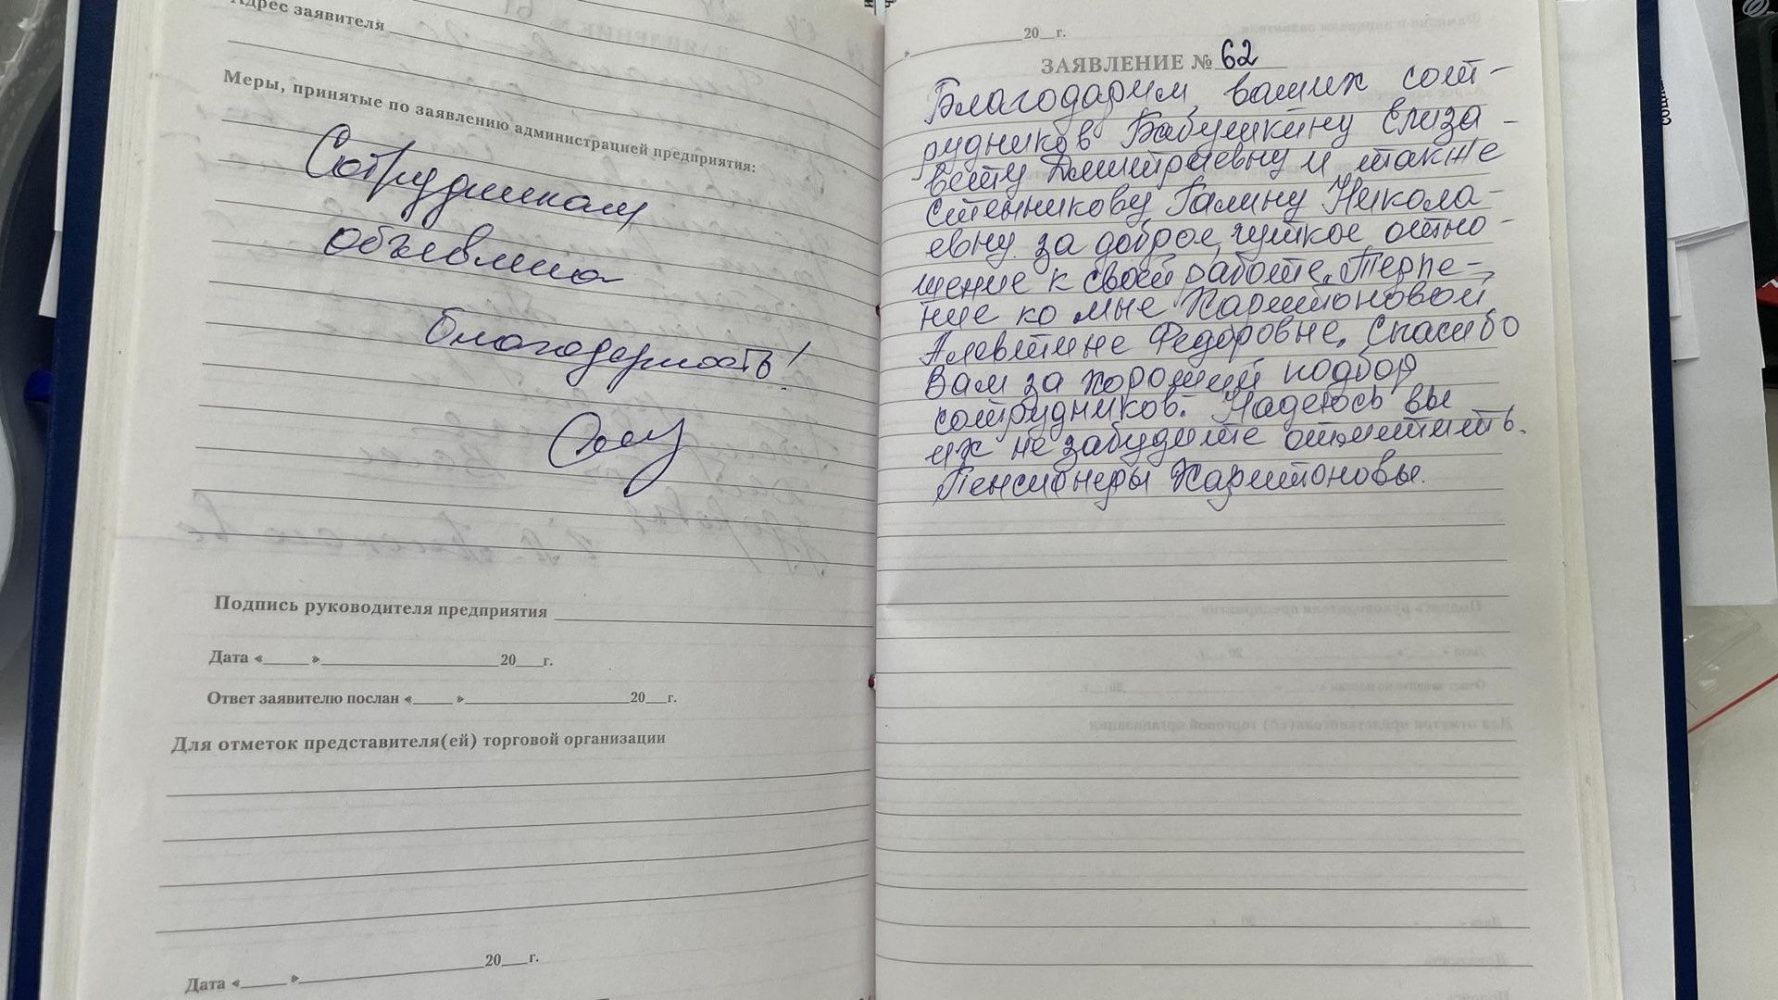 Адрес заявителя
Меры, принятые по заявлению администрацией предприятия:
Сотрудникам
объявлена
благодарность!
Подпись руководителя предприятия
Дата «____» ____ 20__г.
Ответ заявителю послан «____» ____ 20__г.
Для отметок представителя(ей) торговой организации
Дата «____» ____ 20__г.
20__г.
ЗАЯВЛЕНИЕ № 62
Благодарим ваших сот-
рудников Бабушкину Елиза-
вету Дмитриевну и также
Стенникову Галину Никола-
евну за доброе, чуткое отно-
шение к своей работе. Терпе-
ние ко мне Харитоновой
Алевтине Федоровне. Спасибо
Вам за хороший подбор
сотрудников. Надеюсь вы
их не забудите отметить.
Пенсионеры Харитоновы.